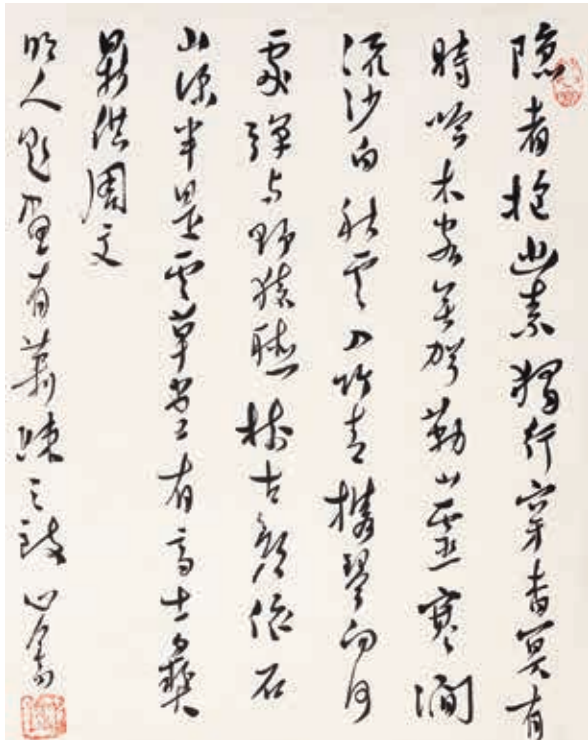 隱者抱幽素獨行穿杳冥有
時吟木客無勞勒山靈寒澗
流沙白秋雲入竹青攜琴向何
處彈與野猿聽樹古依石
山深半是雲草堂有高士彝
鼎供周文
明人題畫有蕭疎之致 心畬